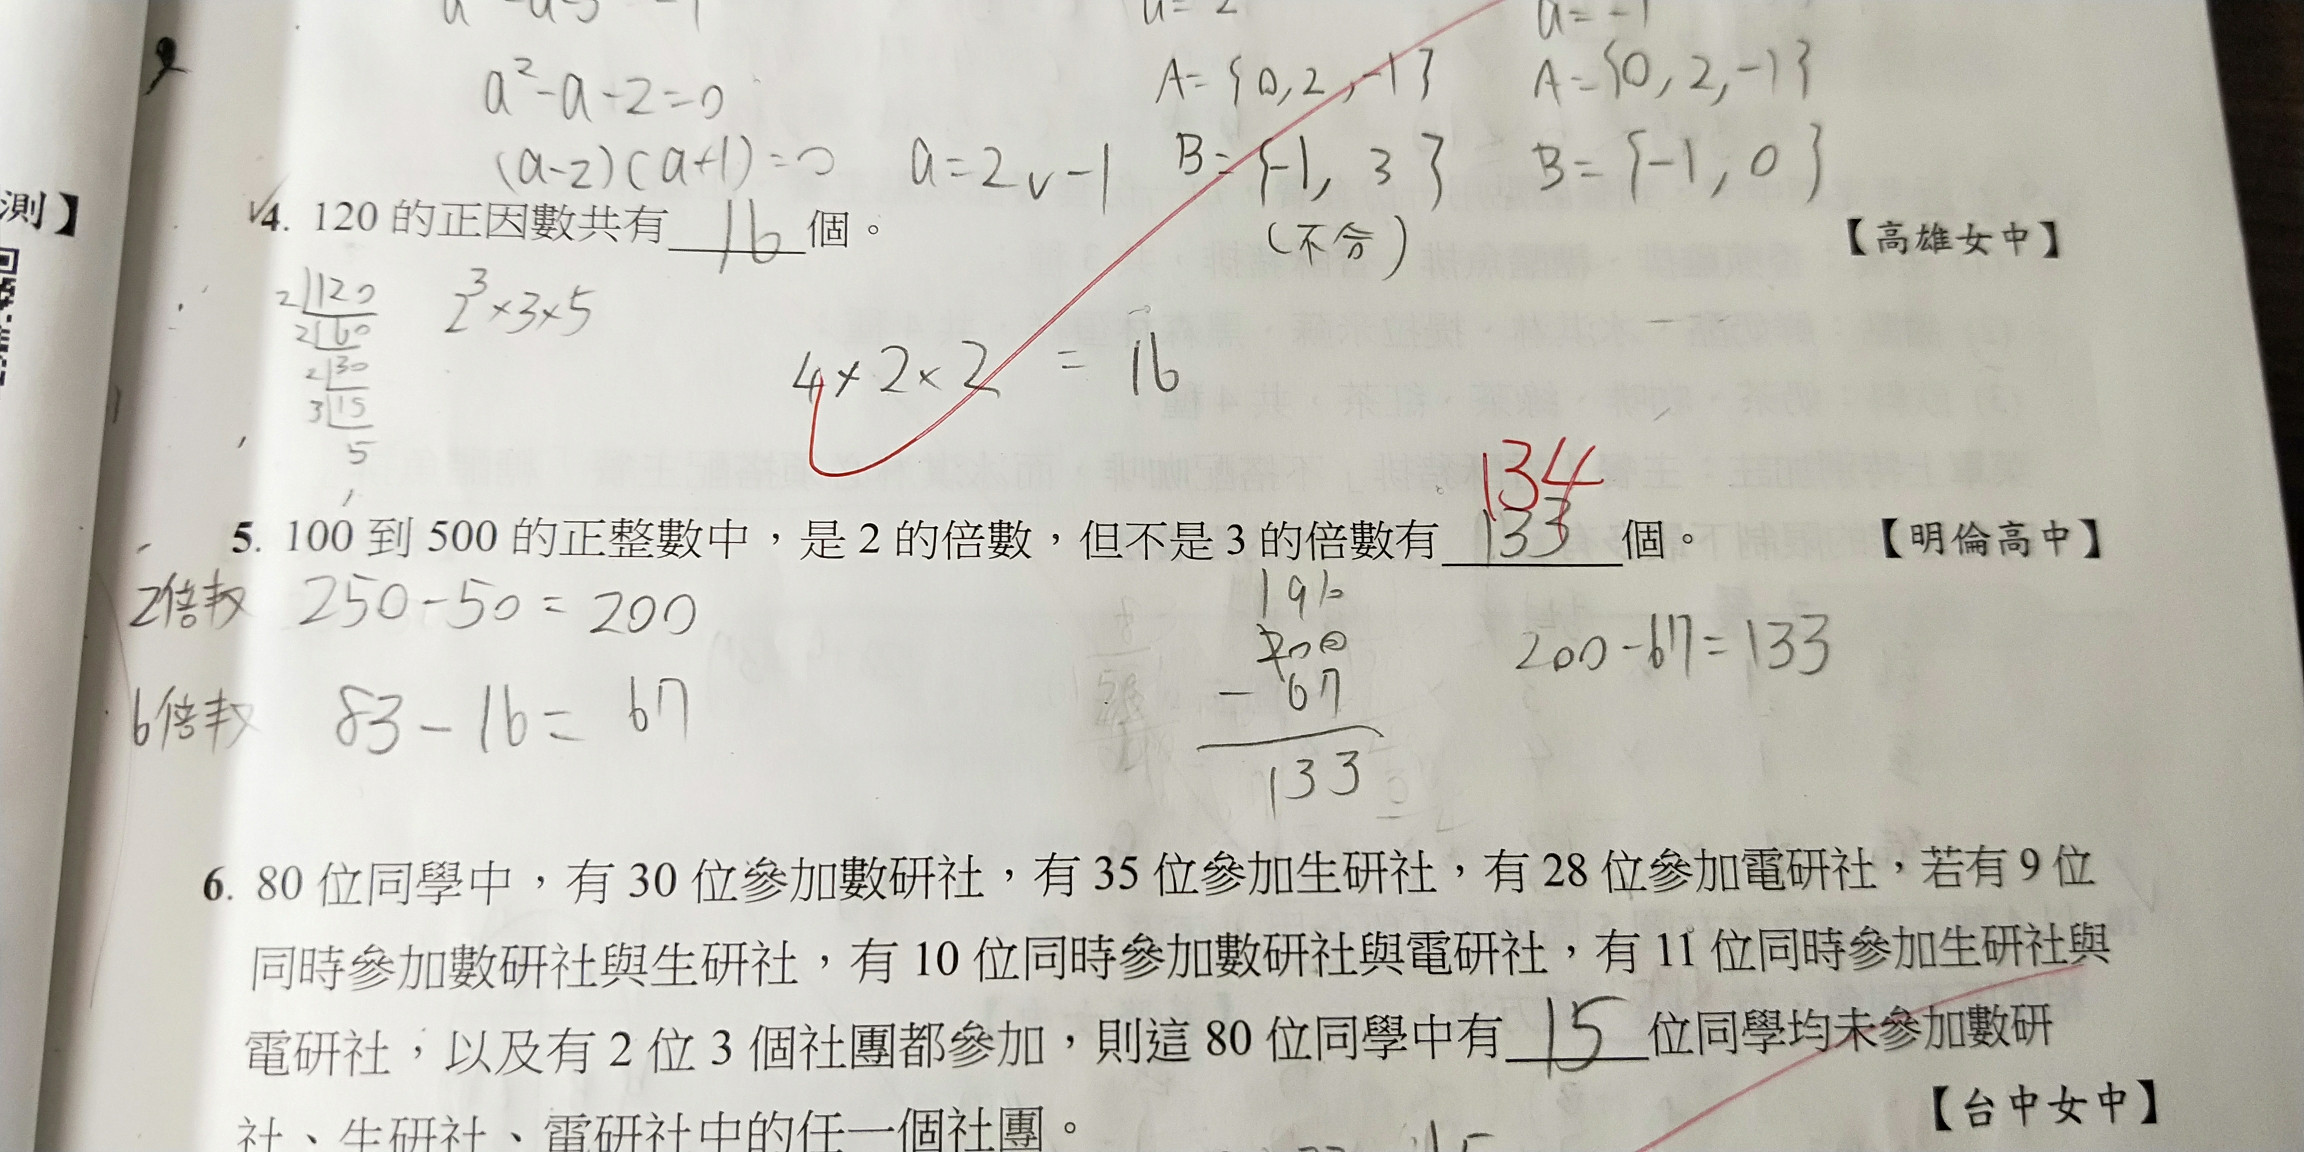 a²-a-2=0
A={0,2,-1}
A={0,2,-1}
(a-2)(a+1)=0
a=2 v -1
B={-1, 3}
B={-1, 0}
(不合)
測】
4. 120 的正因數共有 16 個。
【高雄女中】
2 120
2 60
2 30
3 15
5
2³×3×5
4×2×2 = 16
134
5. 100 到 500 的正整數中，是 2 的倍數，但不是 3 的倍數有 133 個。
【明倫高中】
2倍數 250-50=200
6倍數 83-16=67
200
- 67
133
200-67=133
6. 80 位同學中，有 30 位參加數研社，有 35 位參加生研社，有 28 位參加電研社，若有 9 位
同時參加數研社與生研社，有 10 位同時參加數研社與電研社，有 11 位同時參加生研社與
電研社，以及有 2 位 3 個社團都參加，則這 80 位同學中有 15 位同學均未參加數研
社、生研社、電研社中的任一個社團。
【台中女中】